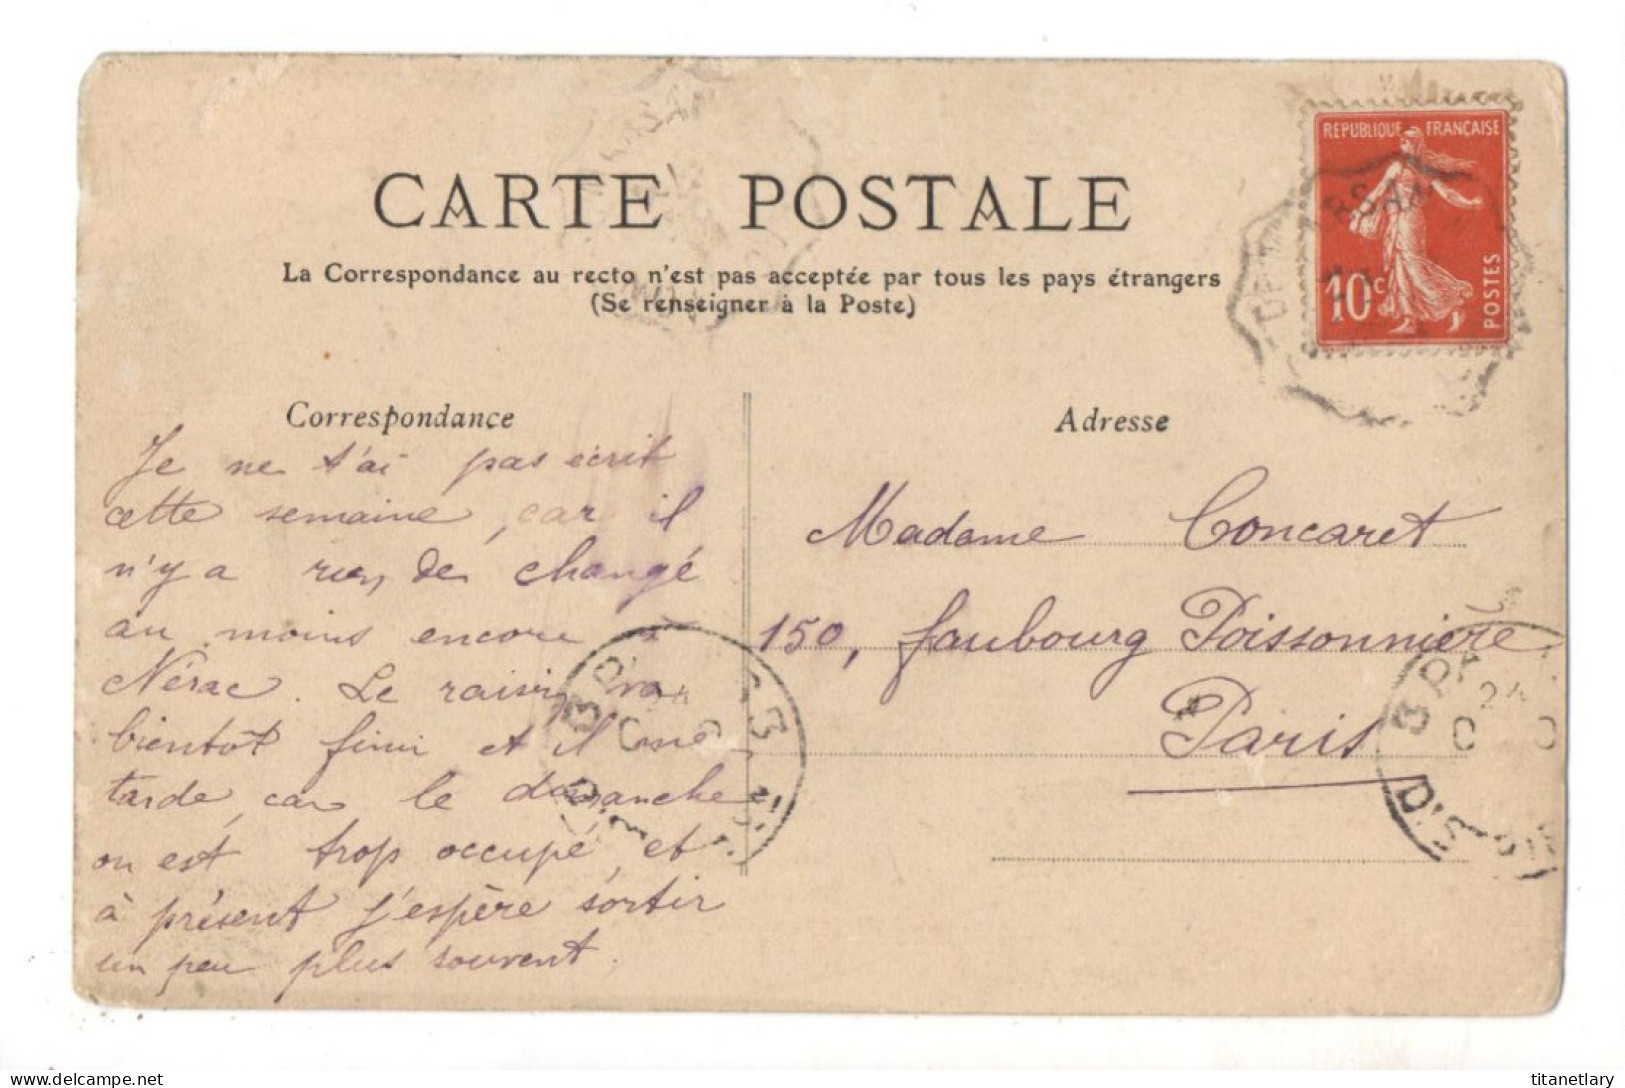 CARTE POSTALE
La Correspondance au recto n'est pas acceptée par tous les pays étrangers
(Se renseigner à la Poste)
REPUBLIQUE FRANÇAISE
10c
POSTES
Correspondance
Je ne t'ai pas écrit
cette semaine, car il
n'y a rien de changé
au moins encore à
Nérac. Le raisin va
bientôt fini et il me
tarde, car le dimanche
on est trop occupé et
à présent j'espère sortir
un peu plus souvent.
Adresse
Madame Concaret
150, faubourg Poissonnière
Paris
titanetlary